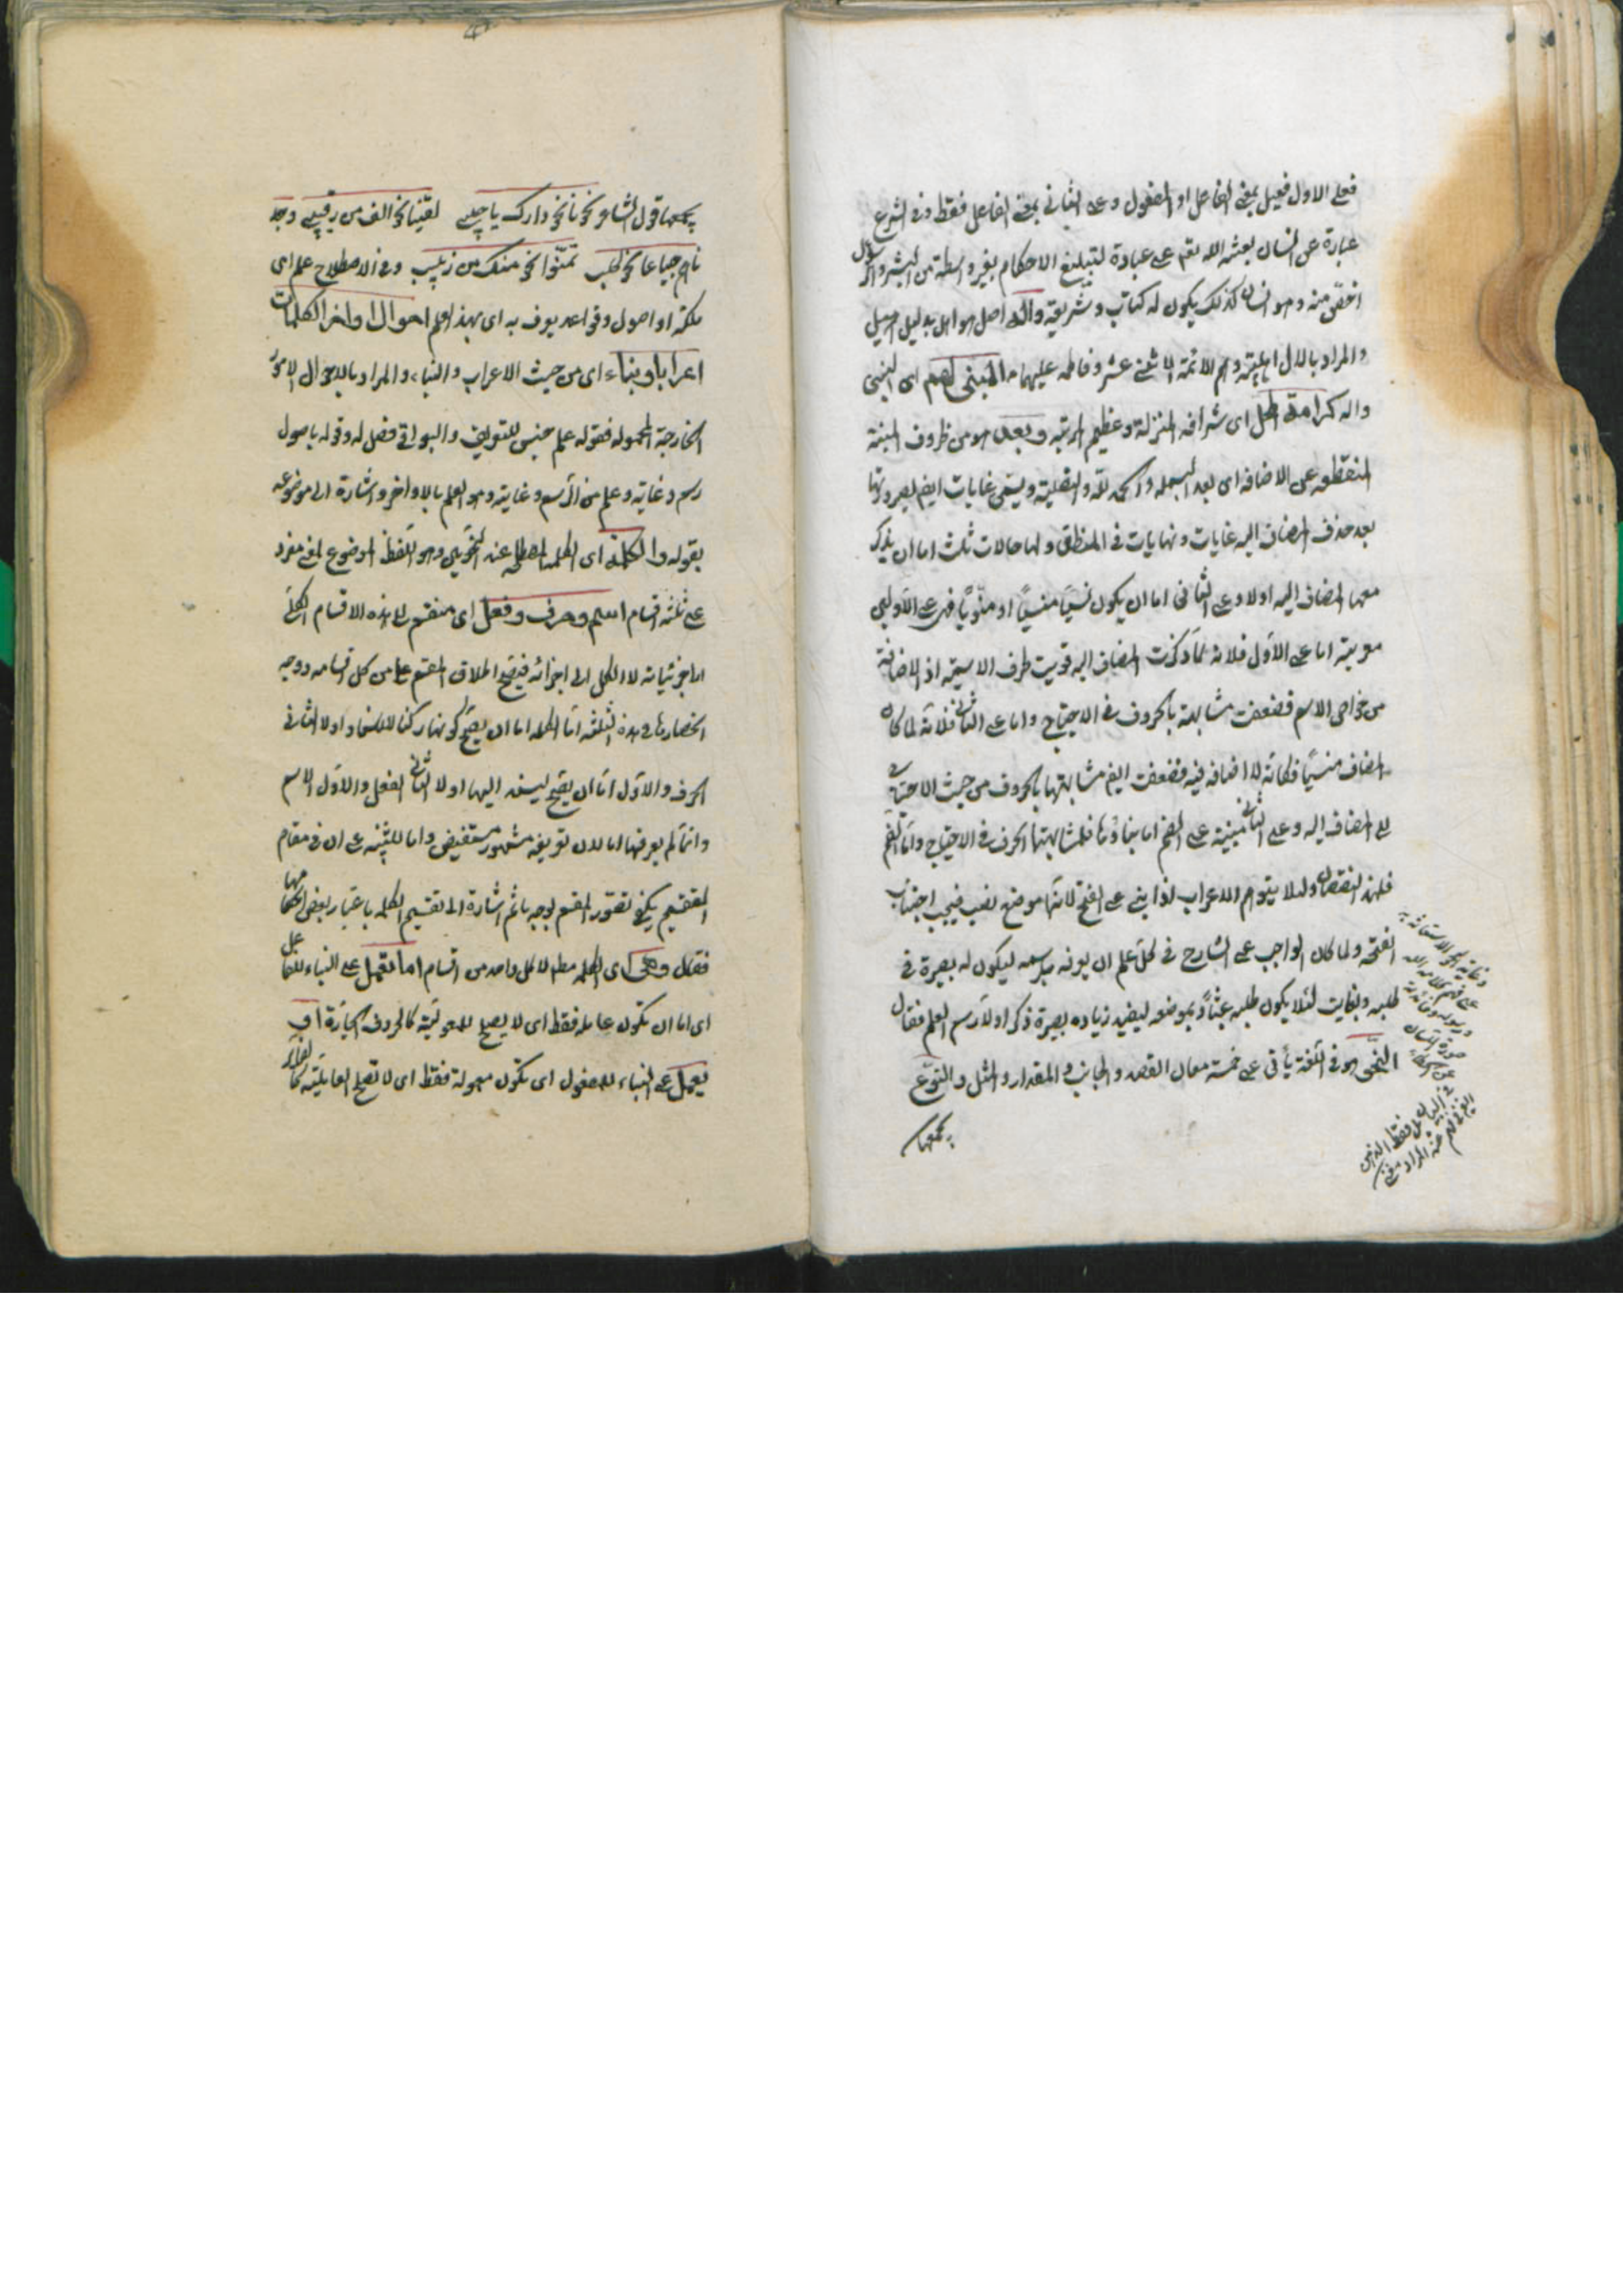 فعلى الاول فعيل بمعنى الفاعل او المفعول وعلى الثاني بمعنى الفاعل فقط وفي الشرع
عبارة عن انسان بعثه الله تعم على عباده لتبليغ الاحكام بغير واسطة من البشر والرسول
اخص منه وهو انسان كذلك يكون له كتاب وشريعة واله اصل هو اهل بدليل اهيل
والمراد بالال اهلبيته وهم الائمة الاثنى عشر وفاطمه عليها م المبنى لهم اى النبى
واله كرامة اى شرافه المنزلة وعظيم المرتبه وبعد هو من ظروف المبنية
المنقطعه عن الاضافه اى بعد البسمله والحمد لله والتصلية ويسمى غايات ايضا لصيرورتها
بعد حذف المضاف اليه غايات ونهايات في المنطق ولها حالات ثلث اما ان يذكر
معها المضاف اليه اولا وعلى الثاني اما ان يكون نسيا منسيا او منويا فهى على الاوليين
معربة اما على الاول فلانه لما ذكرت المضاف اليه قويت طرف الاسمية اذ الاضافة
من خواص الاسم فضعفت مشابهته بالحروف في الاحتياج واما على الثاني فلانه لما كان
المضاف منسيا فكانه لا اضافه فيه فضعفت ايضا مشابهتها بالحروف من حيث الاحتياج
الى المضاف اليه وعلى الثالث مبنية على الضم اما بناؤها فلمشابهتها الحرف في الاحتياج واما الضم
فلهذ النقصان ولئلا يتوهم الاعراب اذا بنى على الفتح لانها موضع نصب فيجب اجتناب
الفتحه ولما كان الواجب على الشارح في كل علم ان يعرفه برسمه ليكون له بصيرة في
طلبه وبغايت لئلا يكون طلبه عبثا وبموضعه ليفيد زياده بصيرة ذكر اولا رسم العلم فقال
النحو هو في اللغة يأتى على خمسة معان القصد والجانب والمقدار والمثل والنوع
يجمعها
وغايته الاستعانة به
على فهم كلام الله
ورسوله وفائدته
صونة اللسان
عن الخطاء
في البيان
يجمعها قول الشاعر نحونا نحو دارك يا حبيبى لقينا نحو الف من رقيب وجد
ناهم جياعا نحو كلب تمنوا نحو منك من زبيب وفي الاصطلاح علم اى
ملكة او اصول وقواعد يعرف به اى بهذا العلم احوال اواخر الكلمات
اعرابا وبناء اى من حيث الاعراب والبناء والمراد بالاحوال الامور
الخارجة المحموله فقوله علم جنس للتعريف والبواقي فصل له وقوله باصول
رسم وغايته وعلم من الرسم وغايته وهو العلم بالاواخر واشارة الى موضوعه
بقوله والكلمة اى الكلمة المصطلح عند النحويين وهو اللفظ الموضوع لمعنى مفرد
على ثلثه اقسام اسم وحرف وفعل اى منقسم الى هذه الاقسام الكلى
الى جزئياته لا الكل الى اجزائه فيصح اطلاق المقسم على من كل اقسامه ووجه
انحصارها في هذه الثلثة اما الكلمه اما ان يصح كونها ركنا للاسناد اولا الثاني
الحرف والاول اما ان يصح ليسند اليها اولا الثاني الفعل والاول الاسم
وانما لم يعرفها اما لان تعريفه مشهور مستفيض واما للتنبيه على ان في مقام
التقسيم يكفى تصور المقسم بوجه ما ثم اشارة الى تقسيم الكلمه باعتبار بعض احكامها
فقال وهى اى الكلمه مطم لا كل واحد من اقسام اما تعمل على البناء للفاعل
اى اما ان تكون عامله فقط اى لا يصلح للمعمولية كالحروف الجارة او
يعمل على البناء للمفعول اى تكون معمولة فقط اى لا تصلح العاملية كا